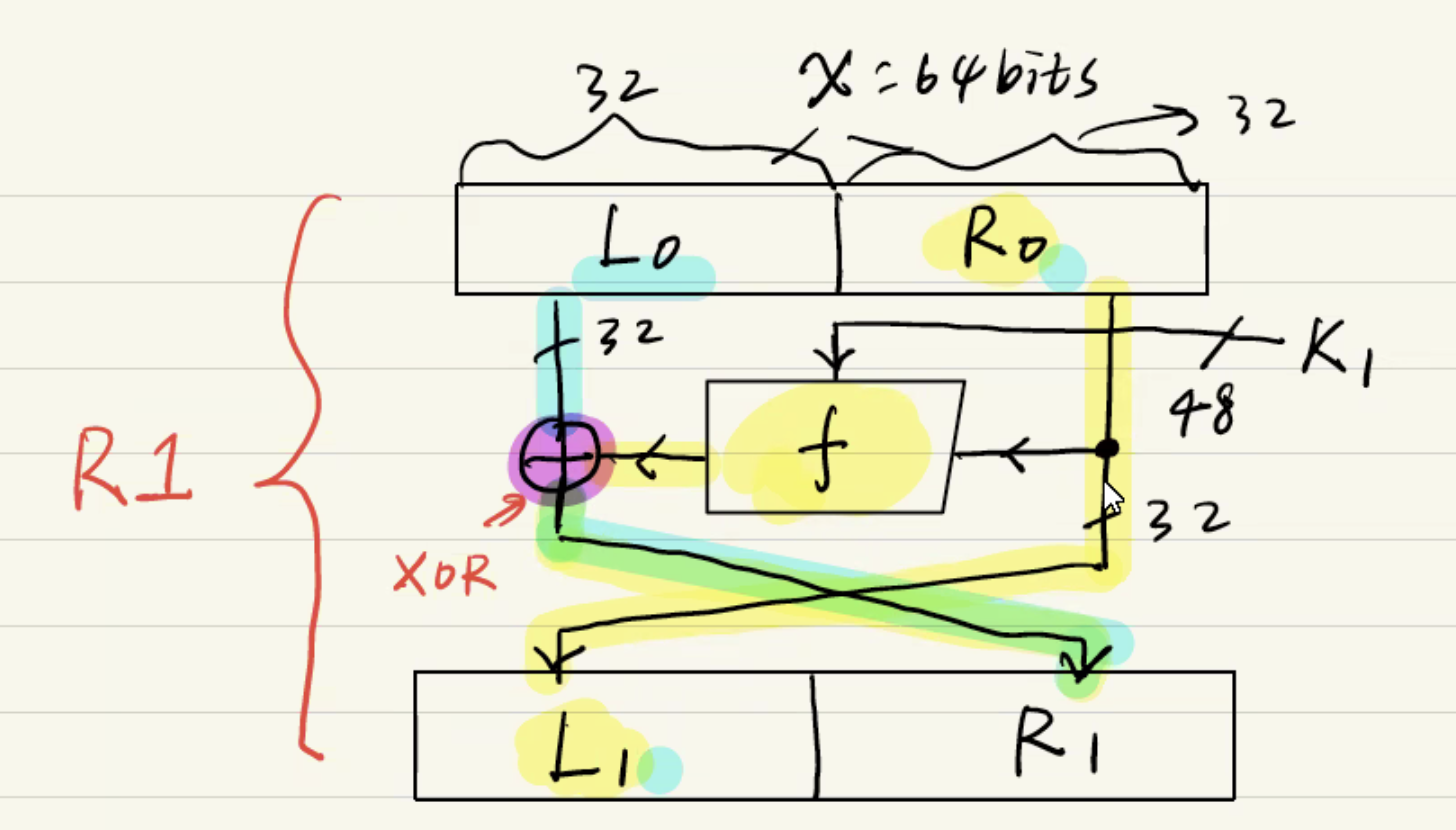 32
x = 64 bits
32
L0
R0
32
K1
48
f
R1
32
XOR
L1
R1